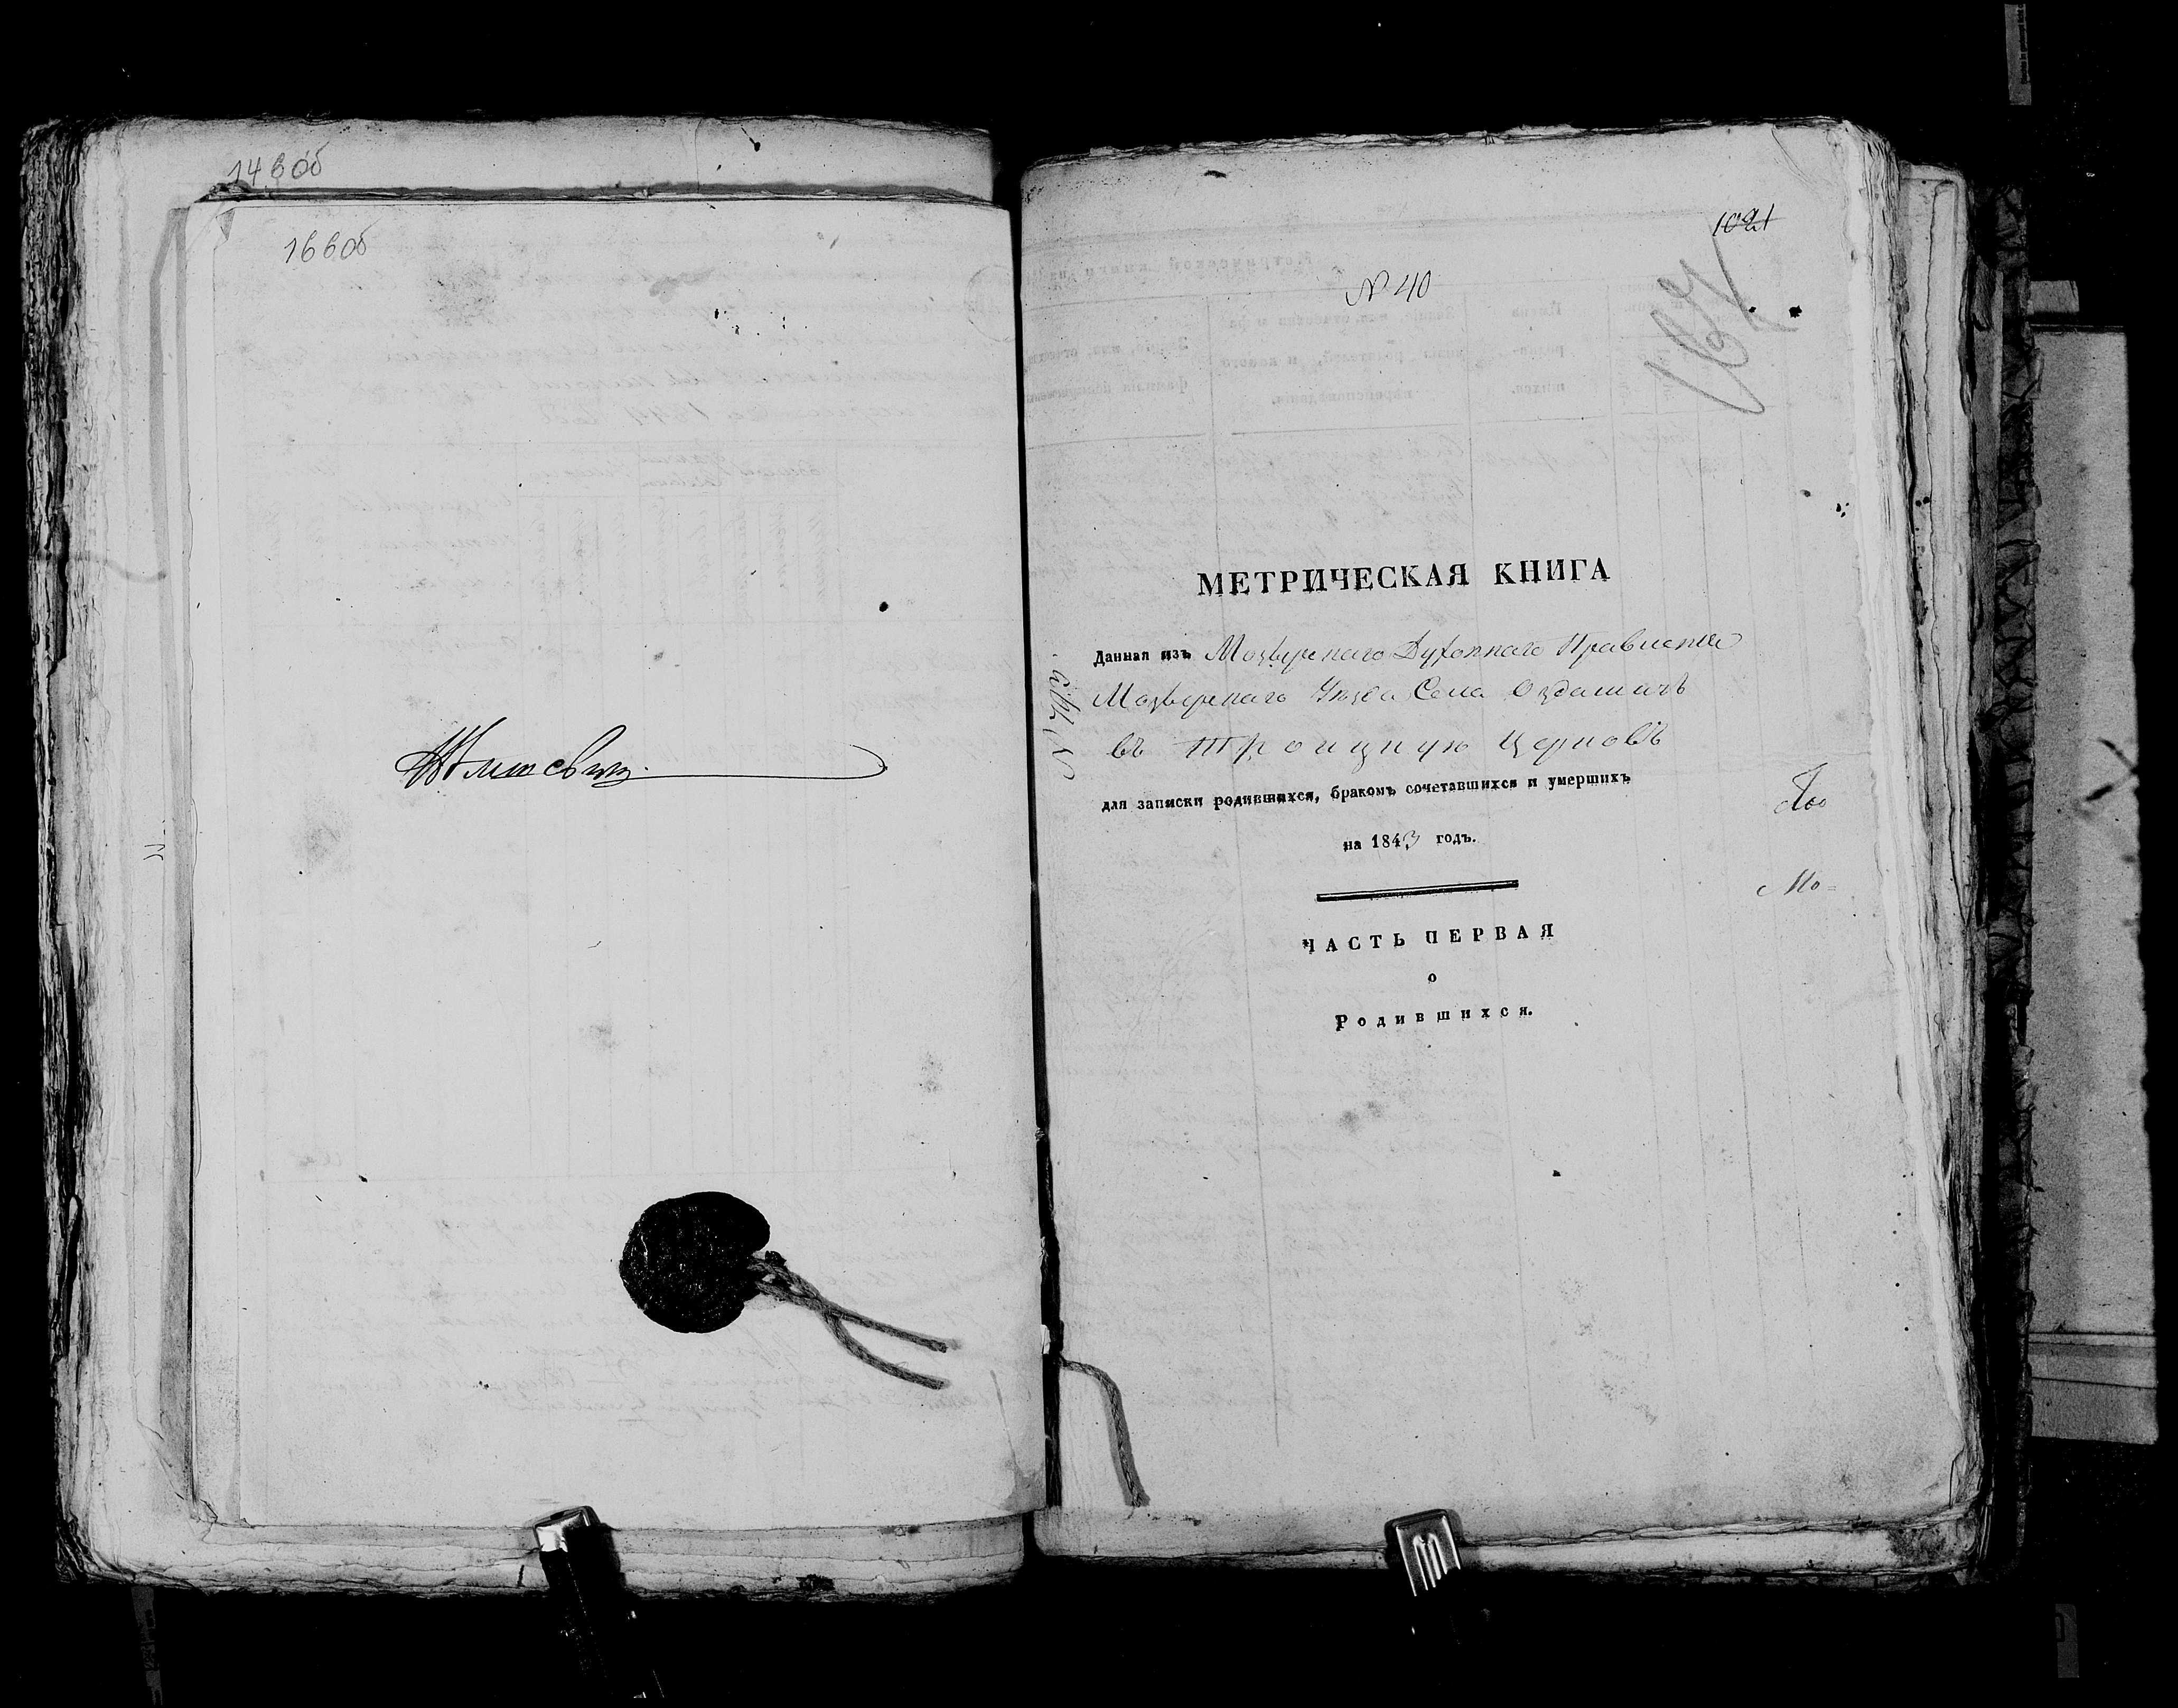 146об
166об
1021
167
N 40
МЕТРИЧЕСКАЯ КНИГА
Данная изъ Мозырскаго Духовнаго Правленія
Мозырскаго Уѣзда Села Оздамичъ
въ Троицкую Церковь
для записки родившихся, бракомъ сочетавшихся и умершихъ
на 1843 годъ.
Мо=
ЧАСТЬ ПЕРВАЯ
о
Родившихся.